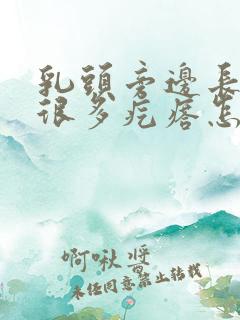 乳頭旁邊長
很多疙瘩怎
啊啾醬
未經同意禁止轉載